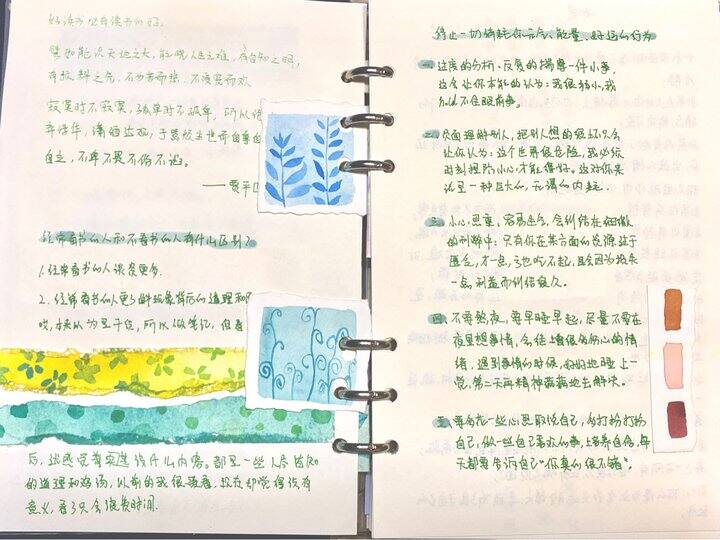 好读书必有读书的好。
譬如能识天地之大，能晓人生之难，有自知之明，
有预料之先，不为苦而悲，不受宠而欢
寂寞时不寂寞，孤单时不孤单，所以
弃浮华，潇洒达观，于嚣烦尘世而自尊自
自立，不卑不畏不俗不谄。
——贾平凹
经常看书的人和不看书的人有什么区别？
1.经常看书的人谈资更多。
2.经常看书的人更了解现象背后的道理和
哎，本来以为是干货，所以做笔记，但看
后，还感觉着实是没什么内容。都是一些人尽皆知
的道理和鸡汤，以前的我很受看，现在却觉得没有
意义，看了只会浪费时间。
停止一切消耗你元气、能量、好运的行为
一、过度的分析、反复的揣摩一件小事，
这会让你本能的认为：我很弱小，我
hold不住眼前事。
二、负面理解别人，把别人想的很坏只会
让你认为：这个世界很危险，我必须
时刻提防小心才能得好。这对你来
说是一种巨大的、无谓的内耗。
三、小心思重、容易生气、会纠结在细微
的利弊中：只有你在某方面的资源处于
匮乏，才一点亏也吃不起，且会因为损失
一点利益而纠结很久。
四、不要熬夜，要早睡早起，尽量不要在
夜里想事情，会徒增很多伤心的情
绪，遇到事情的时候，好好地睡上一
觉，第二天再精神满满地去解决。
五、要多花一些心思取悦自己，多打扮打扮
自己，做一些自己喜欢的事，培养自信，每
天都要告诉自己“你真的很不错”。